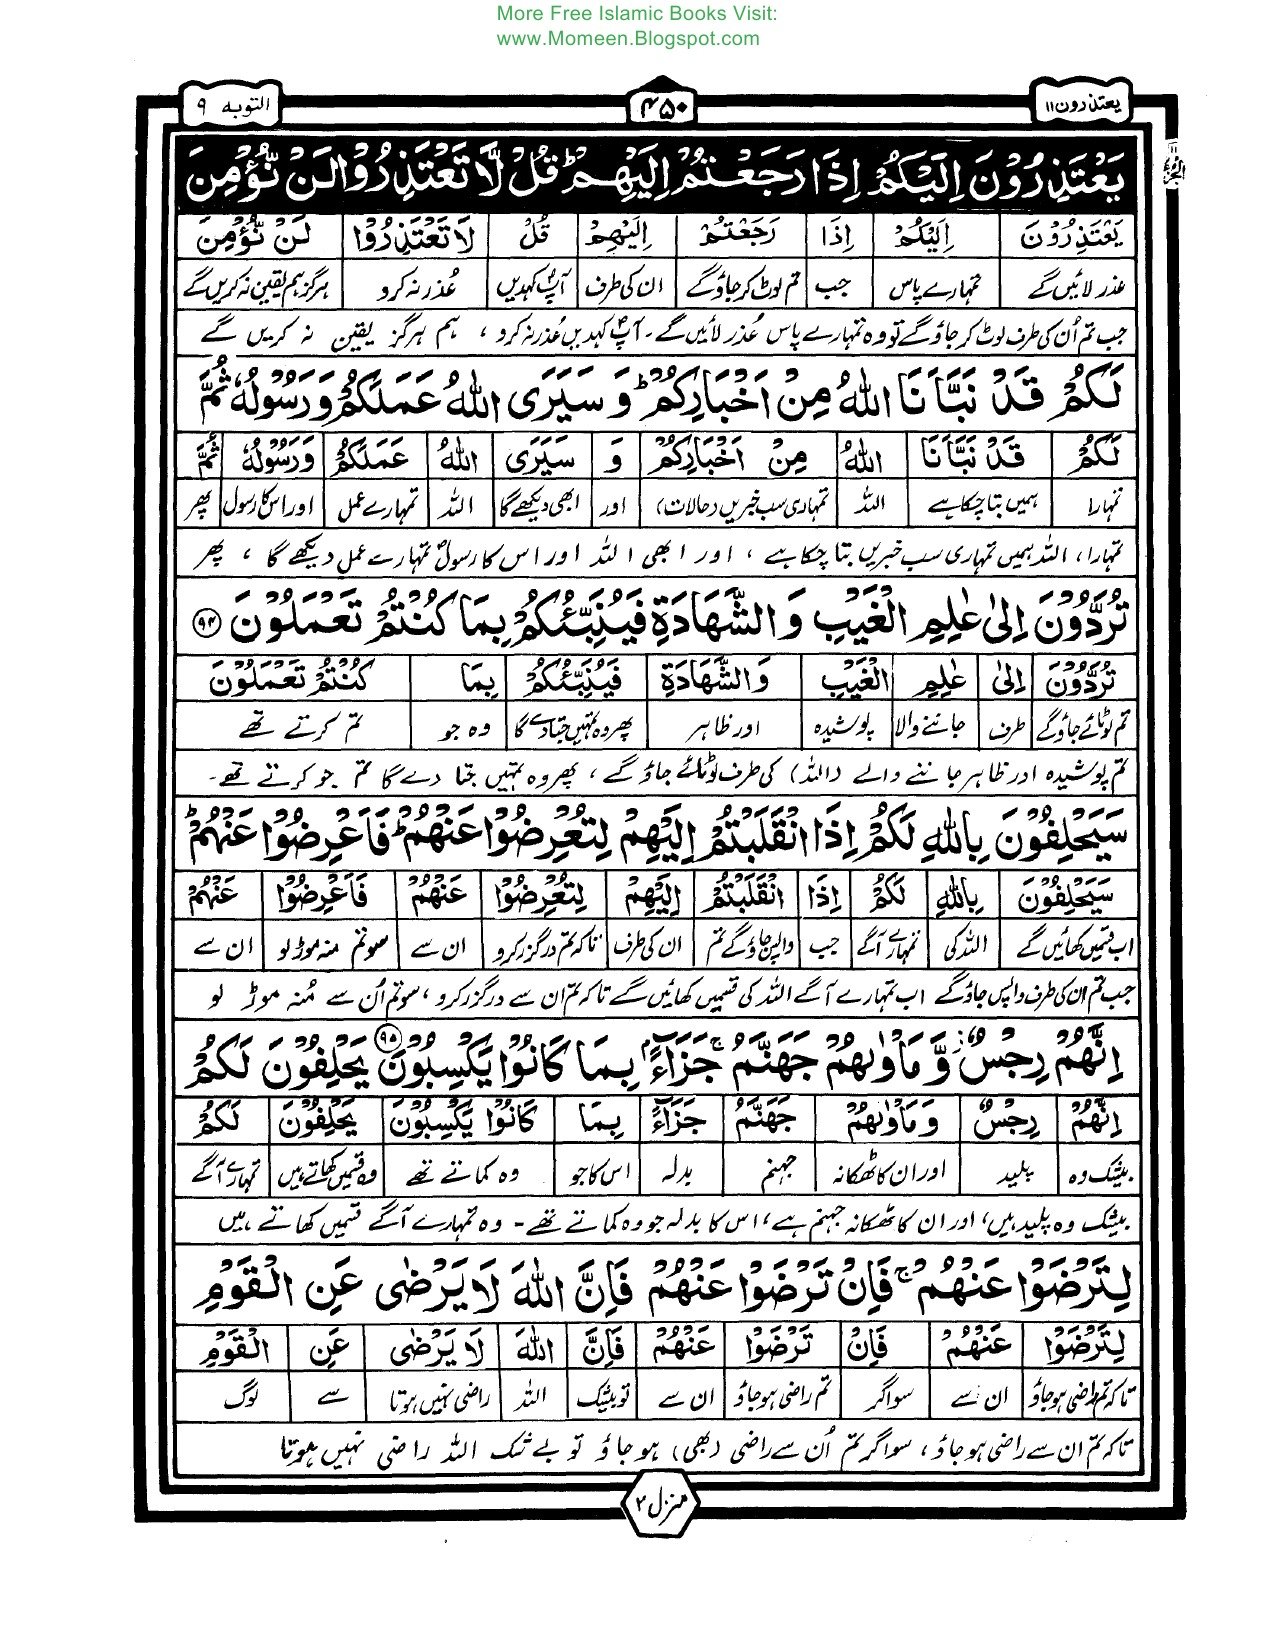 More Free Islamic Books Visit:
www.Momeen.Blogspot.com
یعتذرون ۱۱ ۴۵۰ التوبہ ۹
يَعْتَذِرُوْنَ اِلَيْكُمْ اِذَا رَجَعْتُمْ اِلَيْهِمْ ؕ قُلْ لَّا تَعْتَذِرُوْا لَنْ نُّؤْمِنَ
يَعْتَذِرُوْنَ اِلَيْكُمْ اِذَا رَجَعْتُمْ اِلَيْهِمْ قُلْ لَا تَعْتَذِرُوْا لَنْ نُّؤْمِنَ
عذر لائیں گے تمہارے پاس جب تم لوٹ کر جاؤ گے ان کی طرف آپؐ کہدیں عُذر نہ کرو ہرگز ہم یقین نہ کریں گے
جب تم اُن کی طرف لوٹ کر جاؤ گے تو وہ تمہارے پاس عُذر لائیں گے۔ آپؐ کہدیں عُذر نہ کرو ، ہم ہرگز یقین نہ کریں گے
لَكُمْ قَدْ نَبَّاَنَا اللّٰهُ مِنْ اَخْبَارِكُمْ ؕ وَ سَيَرَى اللّٰهُ عَمَلَكُمْ وَرَسُوْلُهٗ ثُمَّ
لَكُمْ قَدْ نَبَّاَنَا اللّٰهُ مِنْ اَخْبَارِكُمْ وَ سَيَرَى اللّٰهُ عَمَلَكُمْ وَرَسُوْلُهٗ ثُمَّ
تمہارا ہمیں بتا چکا ہے اللہ تمہاری سب خبریں (حالات) اور ابھی دیکھے گا اللہ تمہارے عمل اور اس کا رسول پھر
تمہارا، اللہ ہمیں تمہاری سب خبریں بتا چکا ہے ، اور ابھی اللہ اور اس کا رسولؐ تمہارے عمل دیکھے گا ، پھر
تُرَدُّوْنَ اِلٰى عٰلِمِ الْغَيْبِ وَالشَّهَادَةِ فَيُنَبِّئُكُمْ بِمَا كُنْتُمْ تَعْمَلُوْنَ ۹۴
تُرَدُّوْنَ اِلٰى عٰلِمِ الْغَيْبِ وَالشَّهَادَةِ فَيُنَبِّئُكُمْ بِمَا كُنْتُمْ تَعْمَلُوْنَ
تم لوٹائے جاؤ گے طرف جاننے والا پوشیدہ اور ظاہر پھر وہ تمہیں جتا دے گا وہ جو تم کرتے تھے
تم پوشیدہ اور ظاہر جاننے والے (اللہ) کی طرف لوٹائے جاؤ گے ، پھر وہ تمہیں جتا دے گا تم جو کرتے تھے۔
سَيَحْلِفُوْنَ بِاللّٰهِ لَكُمْ اِذَا انْقَلَبْتُمْ اِلَيْهِمْ لِتُعْرِضُوْا عَنْهُمْ ؕ فَاَعْرِضُوْا عَنْهُمْ ؕ
سَيَحْلِفُوْنَ بِاللّٰهِ لَكُمْ اِذَا انْقَلَبْتُمْ اِلَيْهِمْ لِتُعْرِضُوْا عَنْهُمْ فَاَعْرِضُوْا عَنْهُمْ
اب قسمیں کھائیں گے اللہ کی تمہارے آگے جب واپس جاؤ گے تم ان کی طرف تاکہ تم درگزر کرو ان سے سو تم منہ موڑ لو ان سے
جب تم ان کی طرف واپس جاؤ گے اب تمہارے آگے اللہ کی قسمیں کھائیں گے تاکہ تم ان سے درگزر کرو ، سو تم اُن سے مُنہ موڑ لو
اِنَّهُمْ رِجْسٌ وَّ مَاْوٰىهُمْ جَهَنَّمُ ۚ جَزَآءًۢ بِمَا كَانُوْا يَكْسِبُوْنَ ۹۵ يَحْلِفُوْنَ لَكُمْ
اِنَّهُمْ رِجْسٌ وَمَاْوٰىهُمْ جَهَنَّمُ جَزَآءً بِمَا كَانُوْا يَكْسِبُوْنَ يَحْلِفُوْنَ لَكُمْ
بیشک وہ پلید اور ان کا ٹھکانہ جہنم بدلہ اس کا جو وہ کماتے تھے وہ قسمیں کھاتے ہیں تمہارے آگے
بیشک وہ پلید ہیں، اور ان کا ٹھکانہ جہنم ہے، اس کا بدلہ جو وہ کماتے تھے۔ وہ تمہارے آگے قسمیں کھاتے ہیں
لِتَرْضَوْا عَنْهُمْ ۚ فَاِنْ تَرْضَوْا عَنْهُمْ فَاِنَّ اللّٰهَ لَا يَرْضٰى عَنِ الْقَوْمِ
لِتَرْضَوْا عَنْهُمْ فَاِنْ تَرْضَوْا عَنْهُمْ فَاِنَّ اللّٰهَ لَا يَرْضٰى عَنِ الْقَوْمِ
تاکہ تم راضی ہو جاؤ ان سے سو اگر تم راضی ہو جاؤ ان سے تو بیشک اللہ راضی نہیں ہوتا سے لوگ
تاکہ تم ان سے راضی ہو جاؤ ، سو اگر تم اُن سے راضی (بھی) ہو جاؤ تو بے شک اللہ راضی نہیں ہوتا
منزل ۲